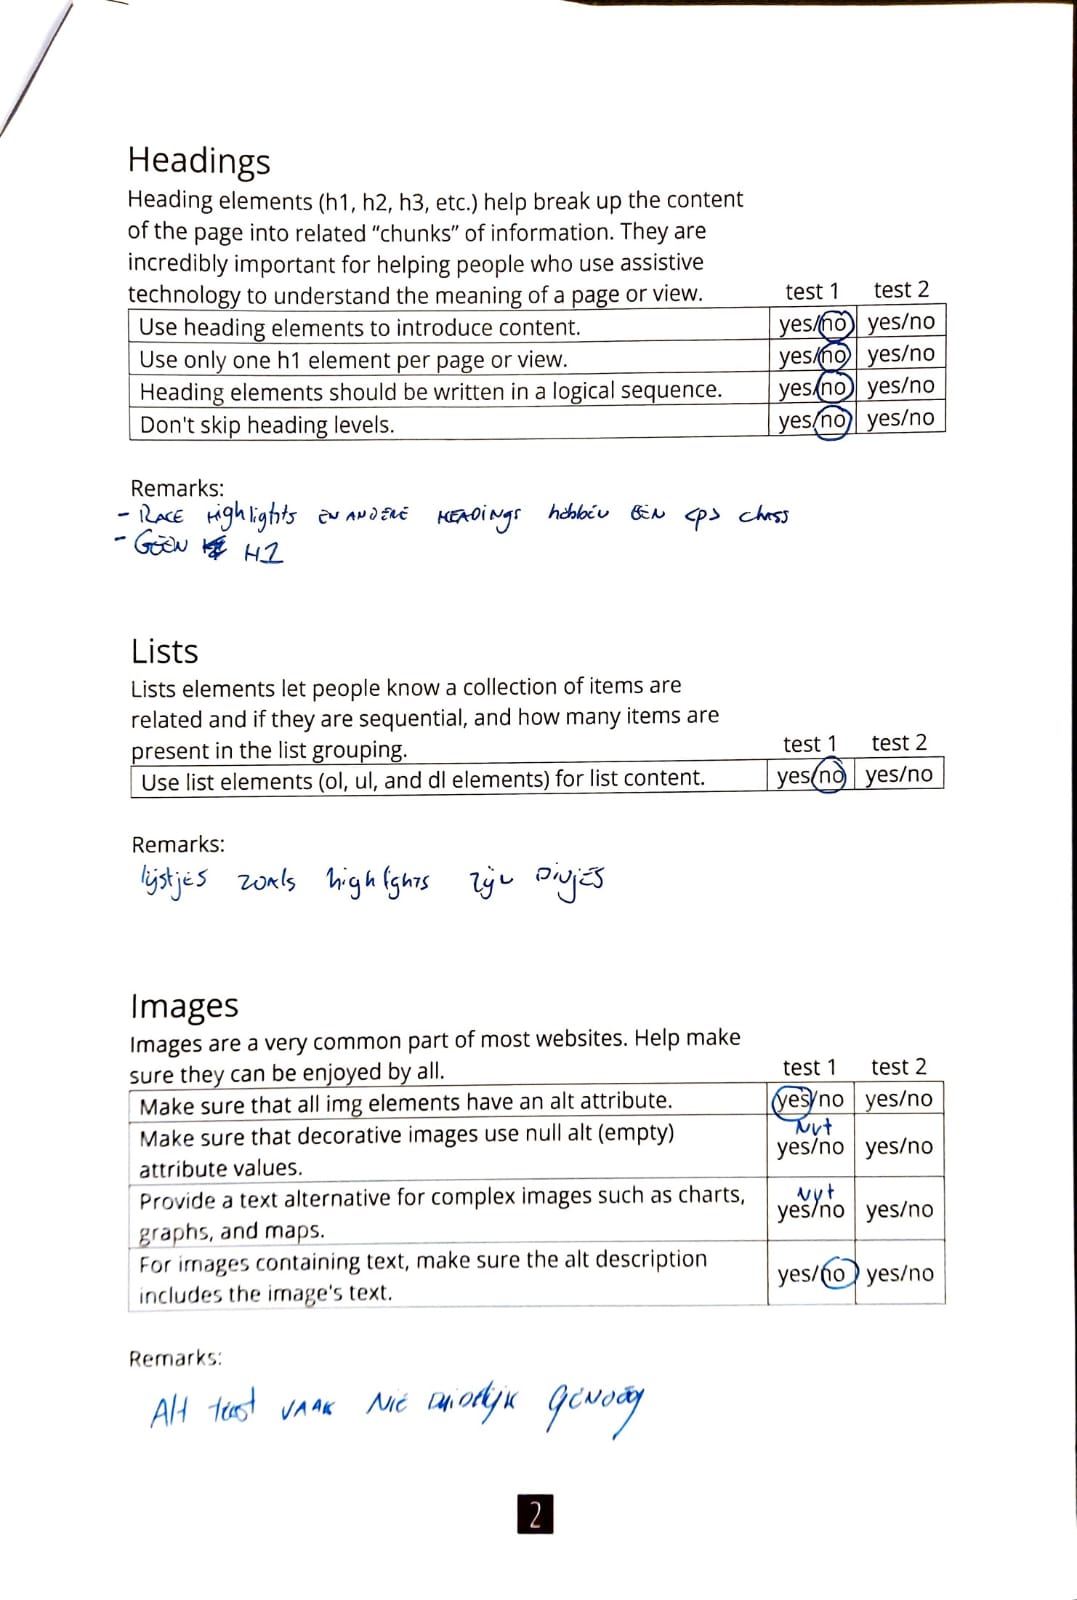 Headings
Heading elements (h1, h2, h3, etc.) help break up the content
of the page into related "chunks" of information. They are
incredibly important for helping people who use assistive
technology to understand the meaning of a page or view. test 1 test 2
Use heading elements to introduce content. yes/no yes/no
Use only one h1 element per page or view. yes/no yes/no
Heading elements should be written in a logical sequence. yes/no yes/no
Don't skip heading levels. yes/no yes/no
Remarks:
- RACE Highlights EN ANDERE HEADINGS hebben EEN <p> class
- GEEN H1
Lists
Lists elements let people know a collection of items are
related and if they are sequential, and how many items are
present in the list grouping. test 1 test 2
Use list elements (ol, ul, and dl elements) for list content. yes/no yes/no
Remarks:
lijstjes zoals highlights zijn Divjes
Images
Images are a very common part of most websites. Help make
sure they can be enjoyed by all. test 1 test 2
Make sure that all img elements have an alt attribute. yes/no yes/no
Make sure that decorative images use null alt (empty)
attribute values. Nvt yes/no yes/no
Provide a text alternative for complex images such as charts,
graphs, and maps. Nvt yes/no yes/no
For images containing text, make sure the alt description
includes the image's text. yes/no yes/no
Remarks:
Alt text VAAK Nie Duidelijk GENOEG
2